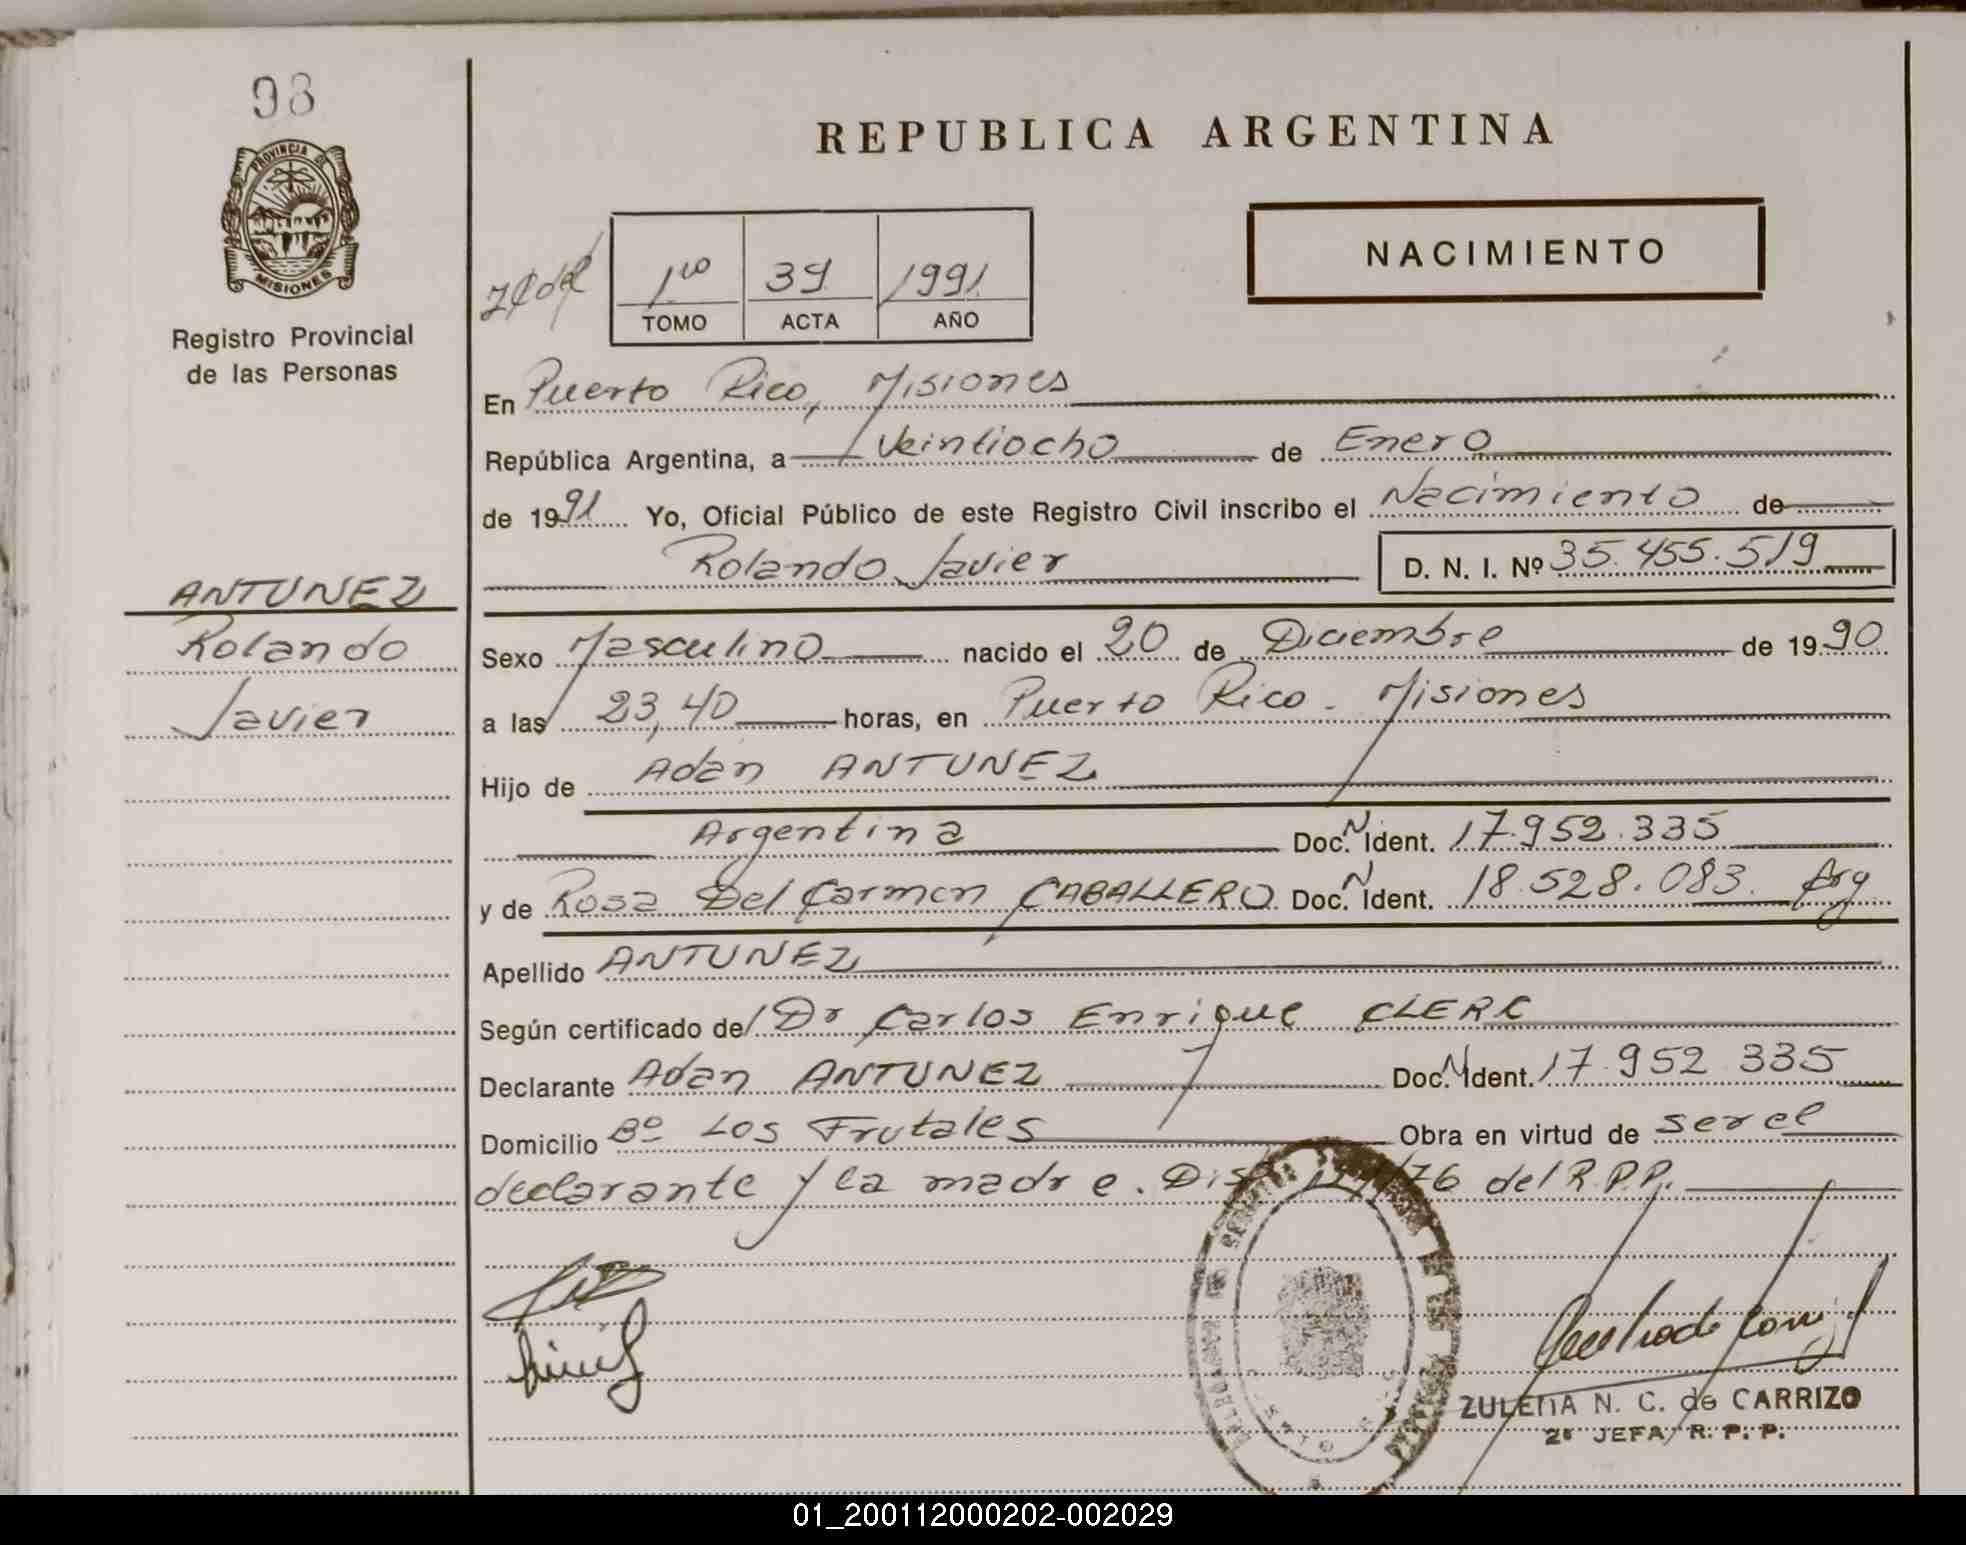 98
PROVINCIA DE
MISIONES
Registro Provincial
de las Personas
ANTUNEZ
Rolando
Javier
REPUBLICA ARGENTINA
NACIMIENTO
1ro 39 1991
TOMO ACTA AÑO
En Puerto Rico, Misiones
República Argentina, a Veintiocho de Enero
de 1991 Yo, Oficial Público de este Registro Civil inscribo el Nacimiento de
Rolando Javier D. N. I. Nº 35.455.519
Sexo Masculino nacido el 20 de Diciembre de 1990
a las 23,40 horas, en Puerto Rico - Misiones
Hijo de Adan ANTUNEZ
Argentina Doc. N Ident. 17.952.335
y de Rosa Del Carmen CABALLERO Doc. N Ident. 18.528.083. Arg
Apellido ANTUNEZ
Según certificado del Dr Carlos Enrique CLERC
Declarante Adan ANTUNEZ Doc. N Ident. 17.952.335
Domicilio Bº Los Frutales Obra en virtud de ser el
declarante y la madre. 76 del R.P.P.
ZULEMA N. C. de CARRIZO
2ª JEFA R. P. P.
01_200112000202-002029